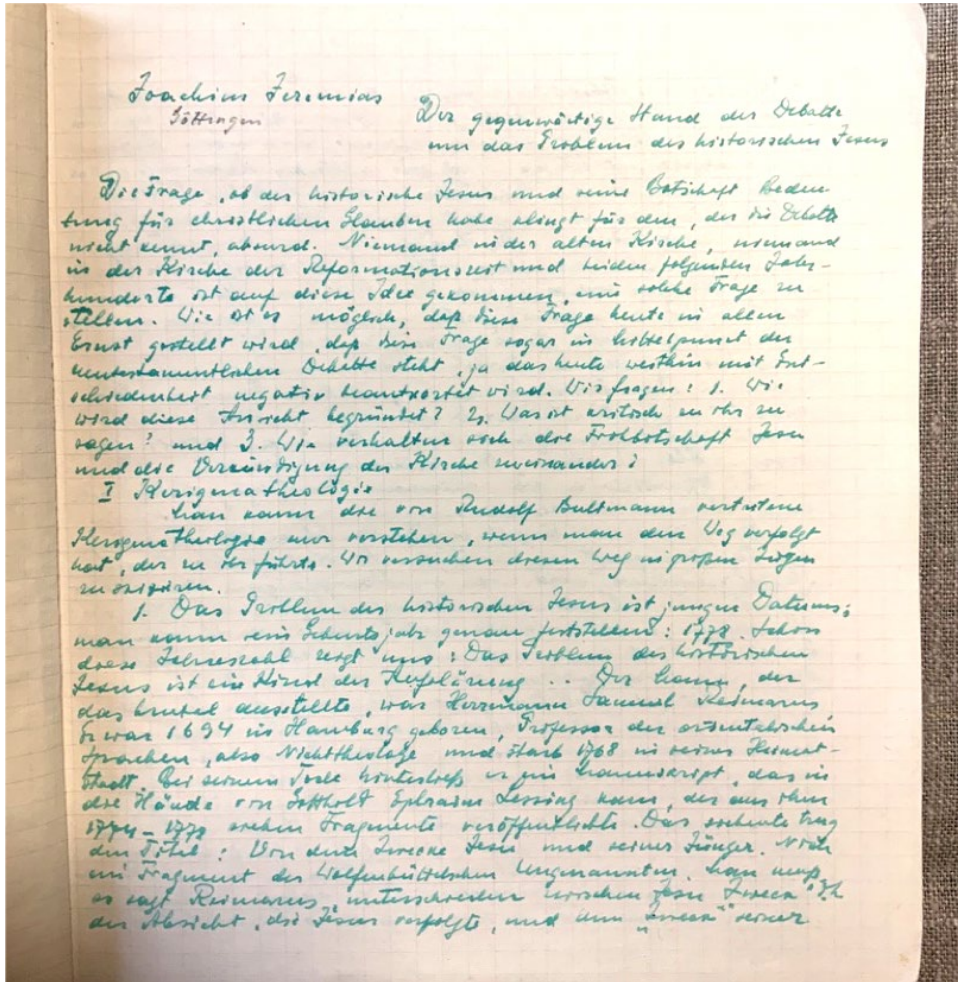 Joachim Jeremias
Göttingen
Der gegenwärtige Stand der Debatte
um das Problem des historischen Jesus
Die Frage, ob der historische Jesus und seine Botschaft Bedeu
tung für christlichen Glauben habe klingt für den, der die Debatte
nicht kennt, absurd. Niemand in der alten Kirche, niemand
in der Kirche der Reformationszeit und beiden folgenden Jahr-
hunderte ist auf diese Idee gekommen, eine solche Frage zu
stellen. Wie ist es möglich, daß diese Frage heute in allem
Ernst gestellt wird, daß diese Frage sogar im Mittelpunkt der
neutestamentlichen Debatte steht, ja das heute weithin mit Ent-
schiedenheit negativ beantwortet wird. Wir fragen: 1. Wie
wird diese Ansicht begründet? 2. Was ist kritisch zu ihr zu
sagen? und 3. Wie verhalten sich die Frohbotschaft Jesu
und die Verkündigung der Kirche zueinander?
I Kerigmatheologie
Man kann die von Rudolf Bultmann vertretene
Kerigmatheologie nur verstehen, wenn man den Weg verfolgt
hat, der zu ihr führte. Wir versuchen diesen Weg in großen Zügen
zu skizzieren.
1. Das Problem des historischen Jesus ist jungen Datums;
man kann sein Geburtsjahr genau feststellen: 1778. Schon
diese Jahreszahl zeigt uns: Das Problem des historischen
Jesus ist ein Kind der Aufklärung .. Der Mann, der
das aufstellte, war Herrmann Samuel Reimarus
Er war 1694 in Hamburg geboren, Professor der orientalischen
Sprachen, also Nichttheologe und starb 1768 in seiner Heimat-
stadt. Bei seinem Tode hinterließ er ein Manuskript, das in
die Hände von Gottholt Ephraim Lessing kam, der aus ihm
1774-1778 sieben Fragmente veröffentlichte. Das siebente trug
den Titel: Von dem Zwecke Jesu und seiner Jünger. Noch
ein Fragment des Wolfenbüttelschen Ungenannten. Man muß
so sagt Reimarus, unterscheiden zwischen Jesu Zweck d.h.
der Absicht, die Jesus verfolgte, und dem "Zweck" seiner